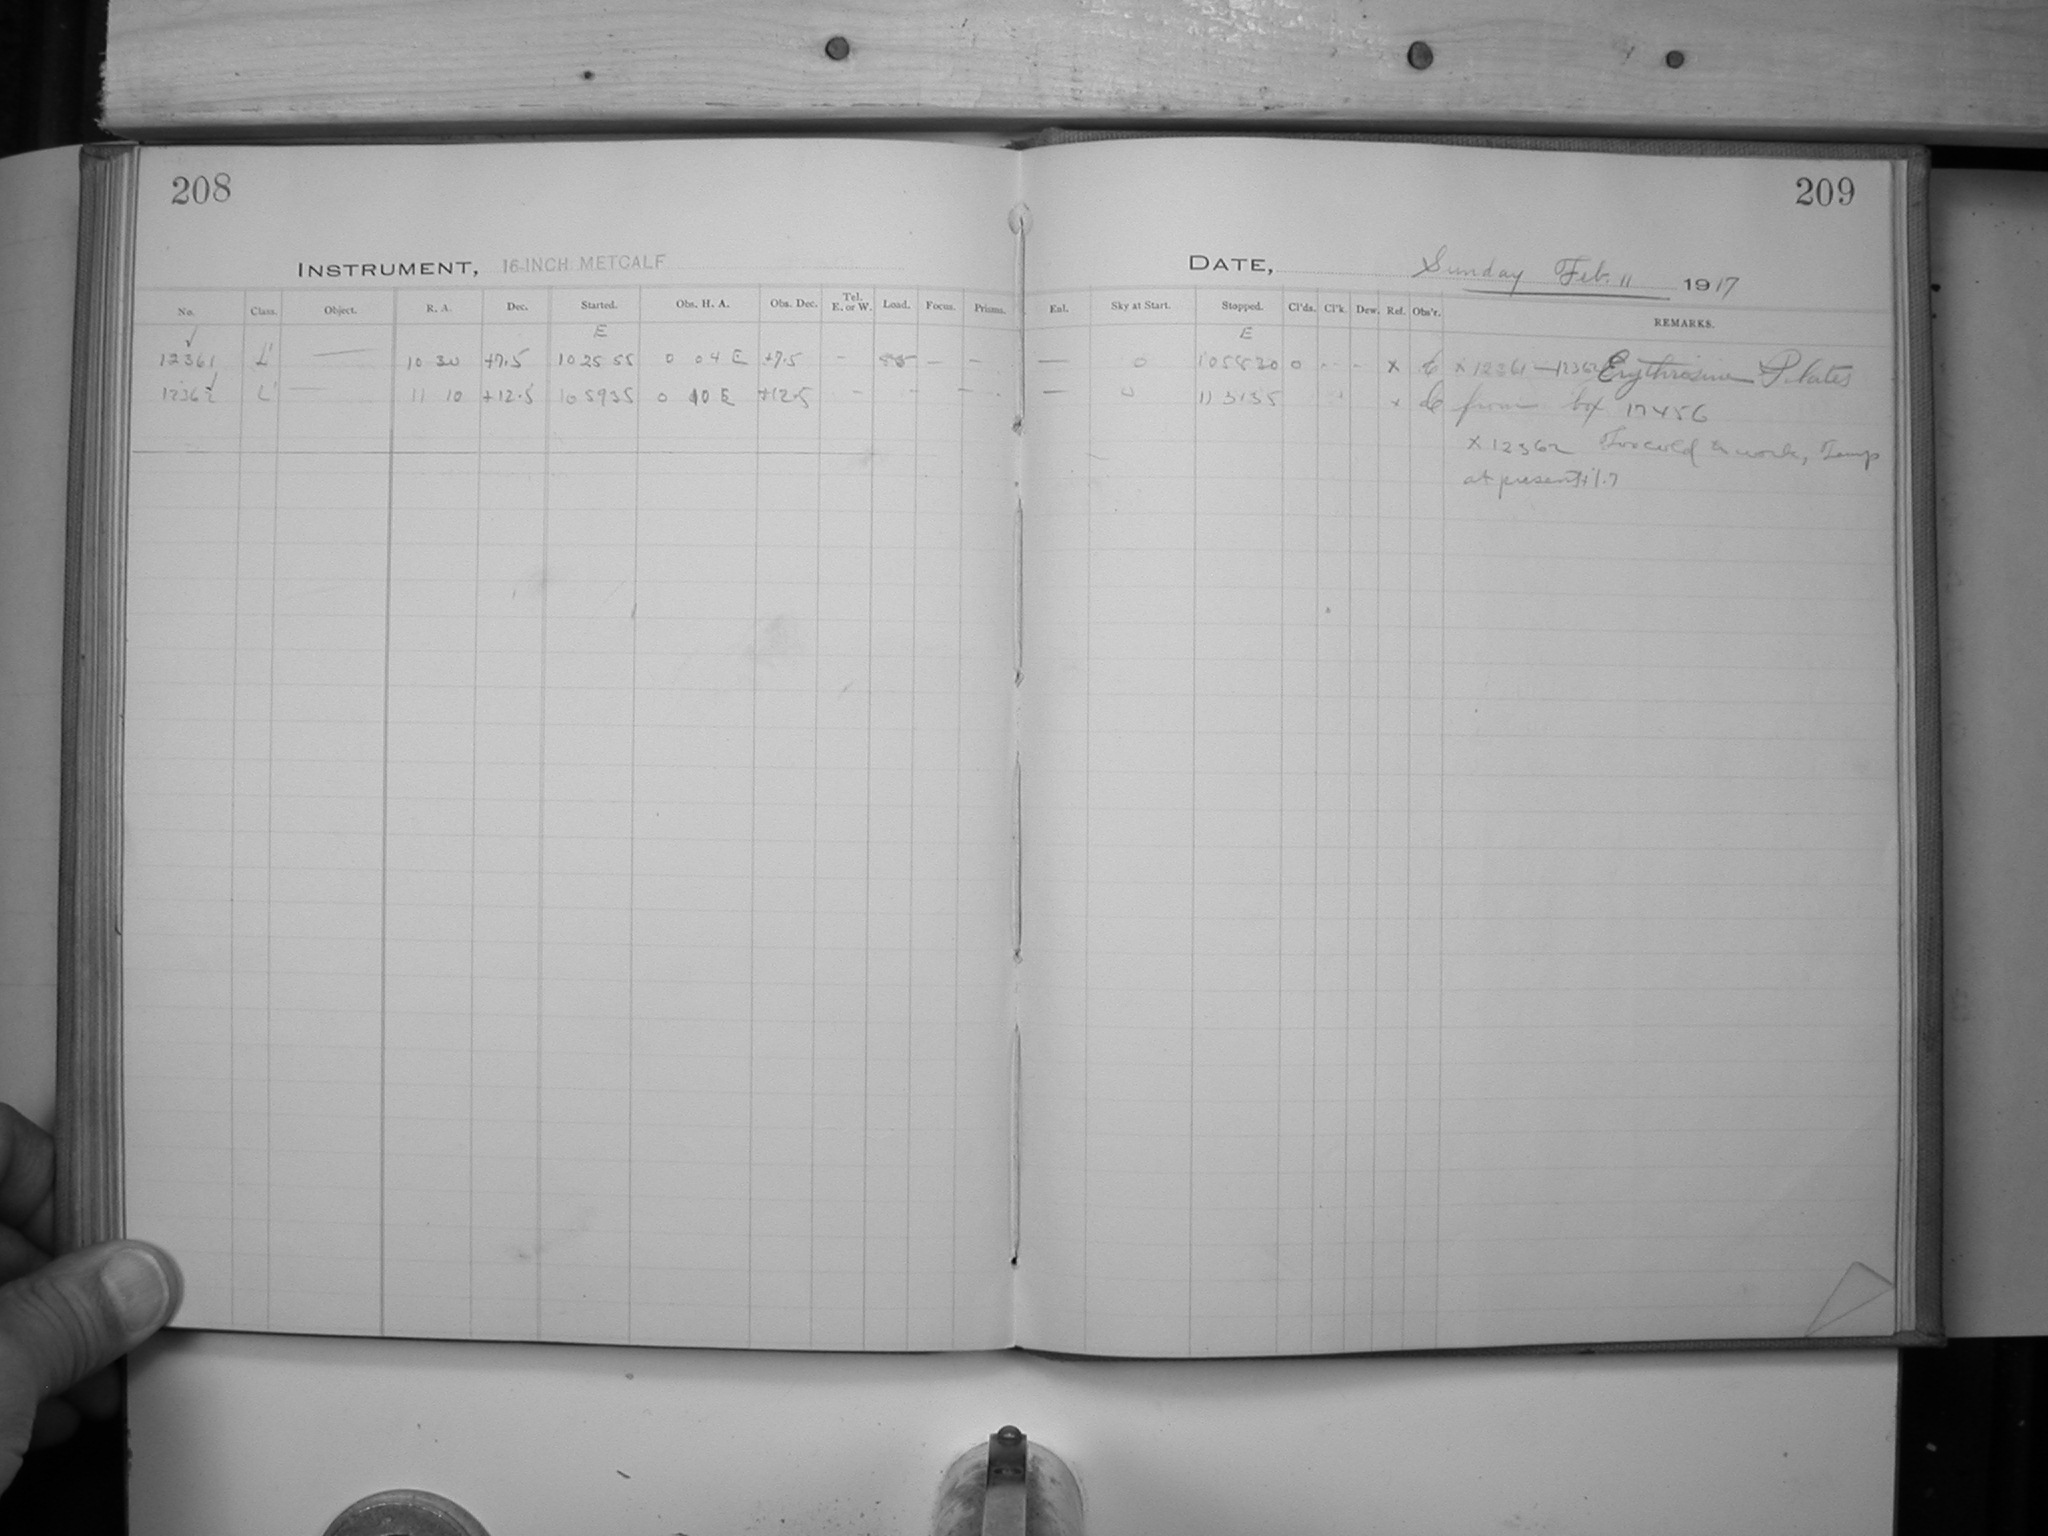 208
209
INSTRUMENT, 16-INCH METCALF
DATE, Sunday Feb. 11 1917
No. Class. Object. R. A. Dec. Started. Obs. H. A. Obs. Dec. Tel. E. or W. Load. Focus. Prisms. Enl. Sky at Start. Stopped. Cl'ds. Cl'k. Dew. Ref. Obs'r. REMARKS.
E E
12361 L' — 10 30 +7.5 10 25 55 0 04 E +7.5 - - - — 0 10 58 20 0 - - x x 12361—12362 Erythrosine Plates
12362 L' — 11 10 +12.5 10 59 35 0 10 E +12.5 - - — 11 31 35 x from box 17456
x 12362 Too cold to work, Temp
at present